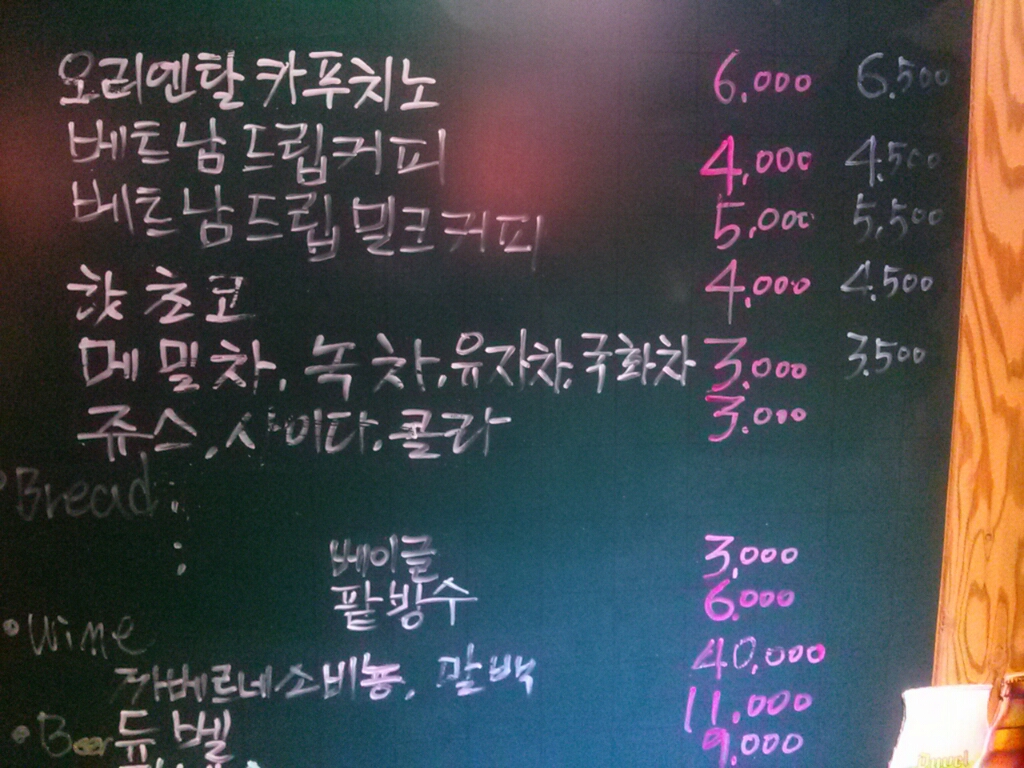 오리엔탈 카푸치노 6,000 6.500
베트남 드립커피 4,000 4.500
베트남드립 밀크커피 5,000 5,500
핫초코 4,000 4.500
메밀차, 녹차, 유자차, 국화차 3,000 3,500
쥬스, 사이다, 콜라 3,000
Bread :
: 베이글 3,000
팥빙수 6,000
• Wine
까베르네소비뇽, 말백 40,000
11,000
• Beer 듀벨 9,000